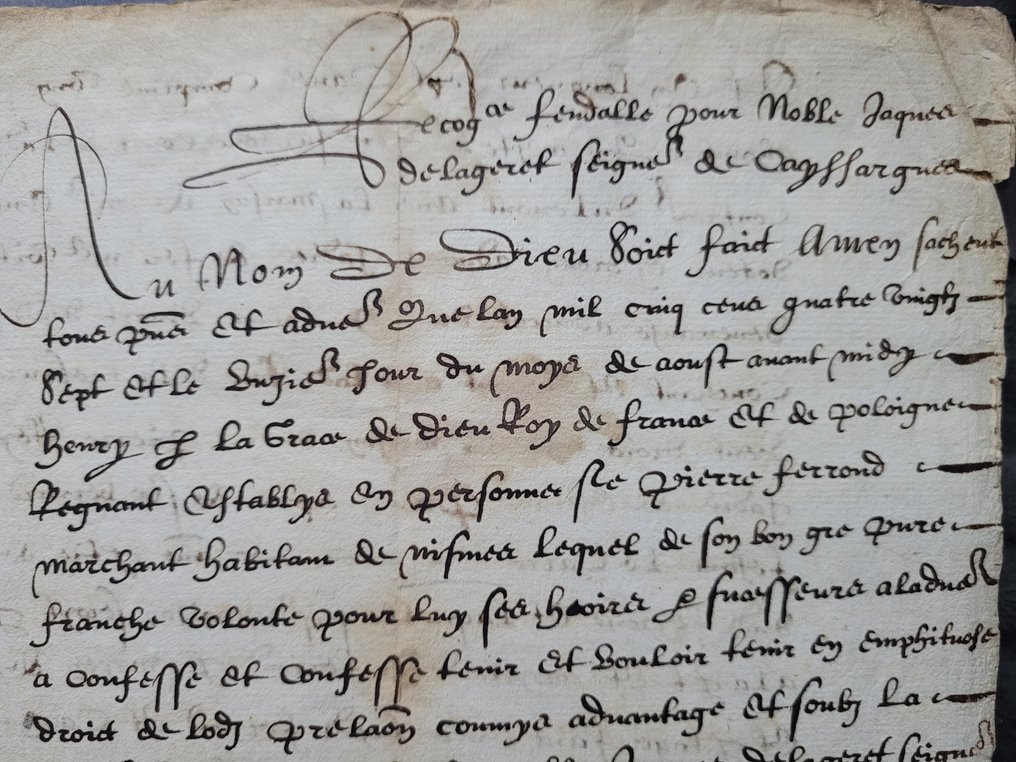 Recog.ce feudalle pour Noble Jaques
delageret seigner de Cayssargues
Au Nom De Dieu Soict faict Amen sachent
tous pn̄s et adver Que lan mil cinq cens quatre vingtz
Sept et le unzier Jour du moys de aoust avant midy
henry p la Grace de dieu Roy de france et de poloigne
Regnant establys en personne sre pierre ferrond
marchant habitant de nismes lequel de son bon gre pure
franche volonte pour luy ses hoirs & successeurs aladver
a confesse et confesse tenir et vouloir tenir en emphiteose
droict de lodz prelaōn commys advantage et soubz la
delageret seigner